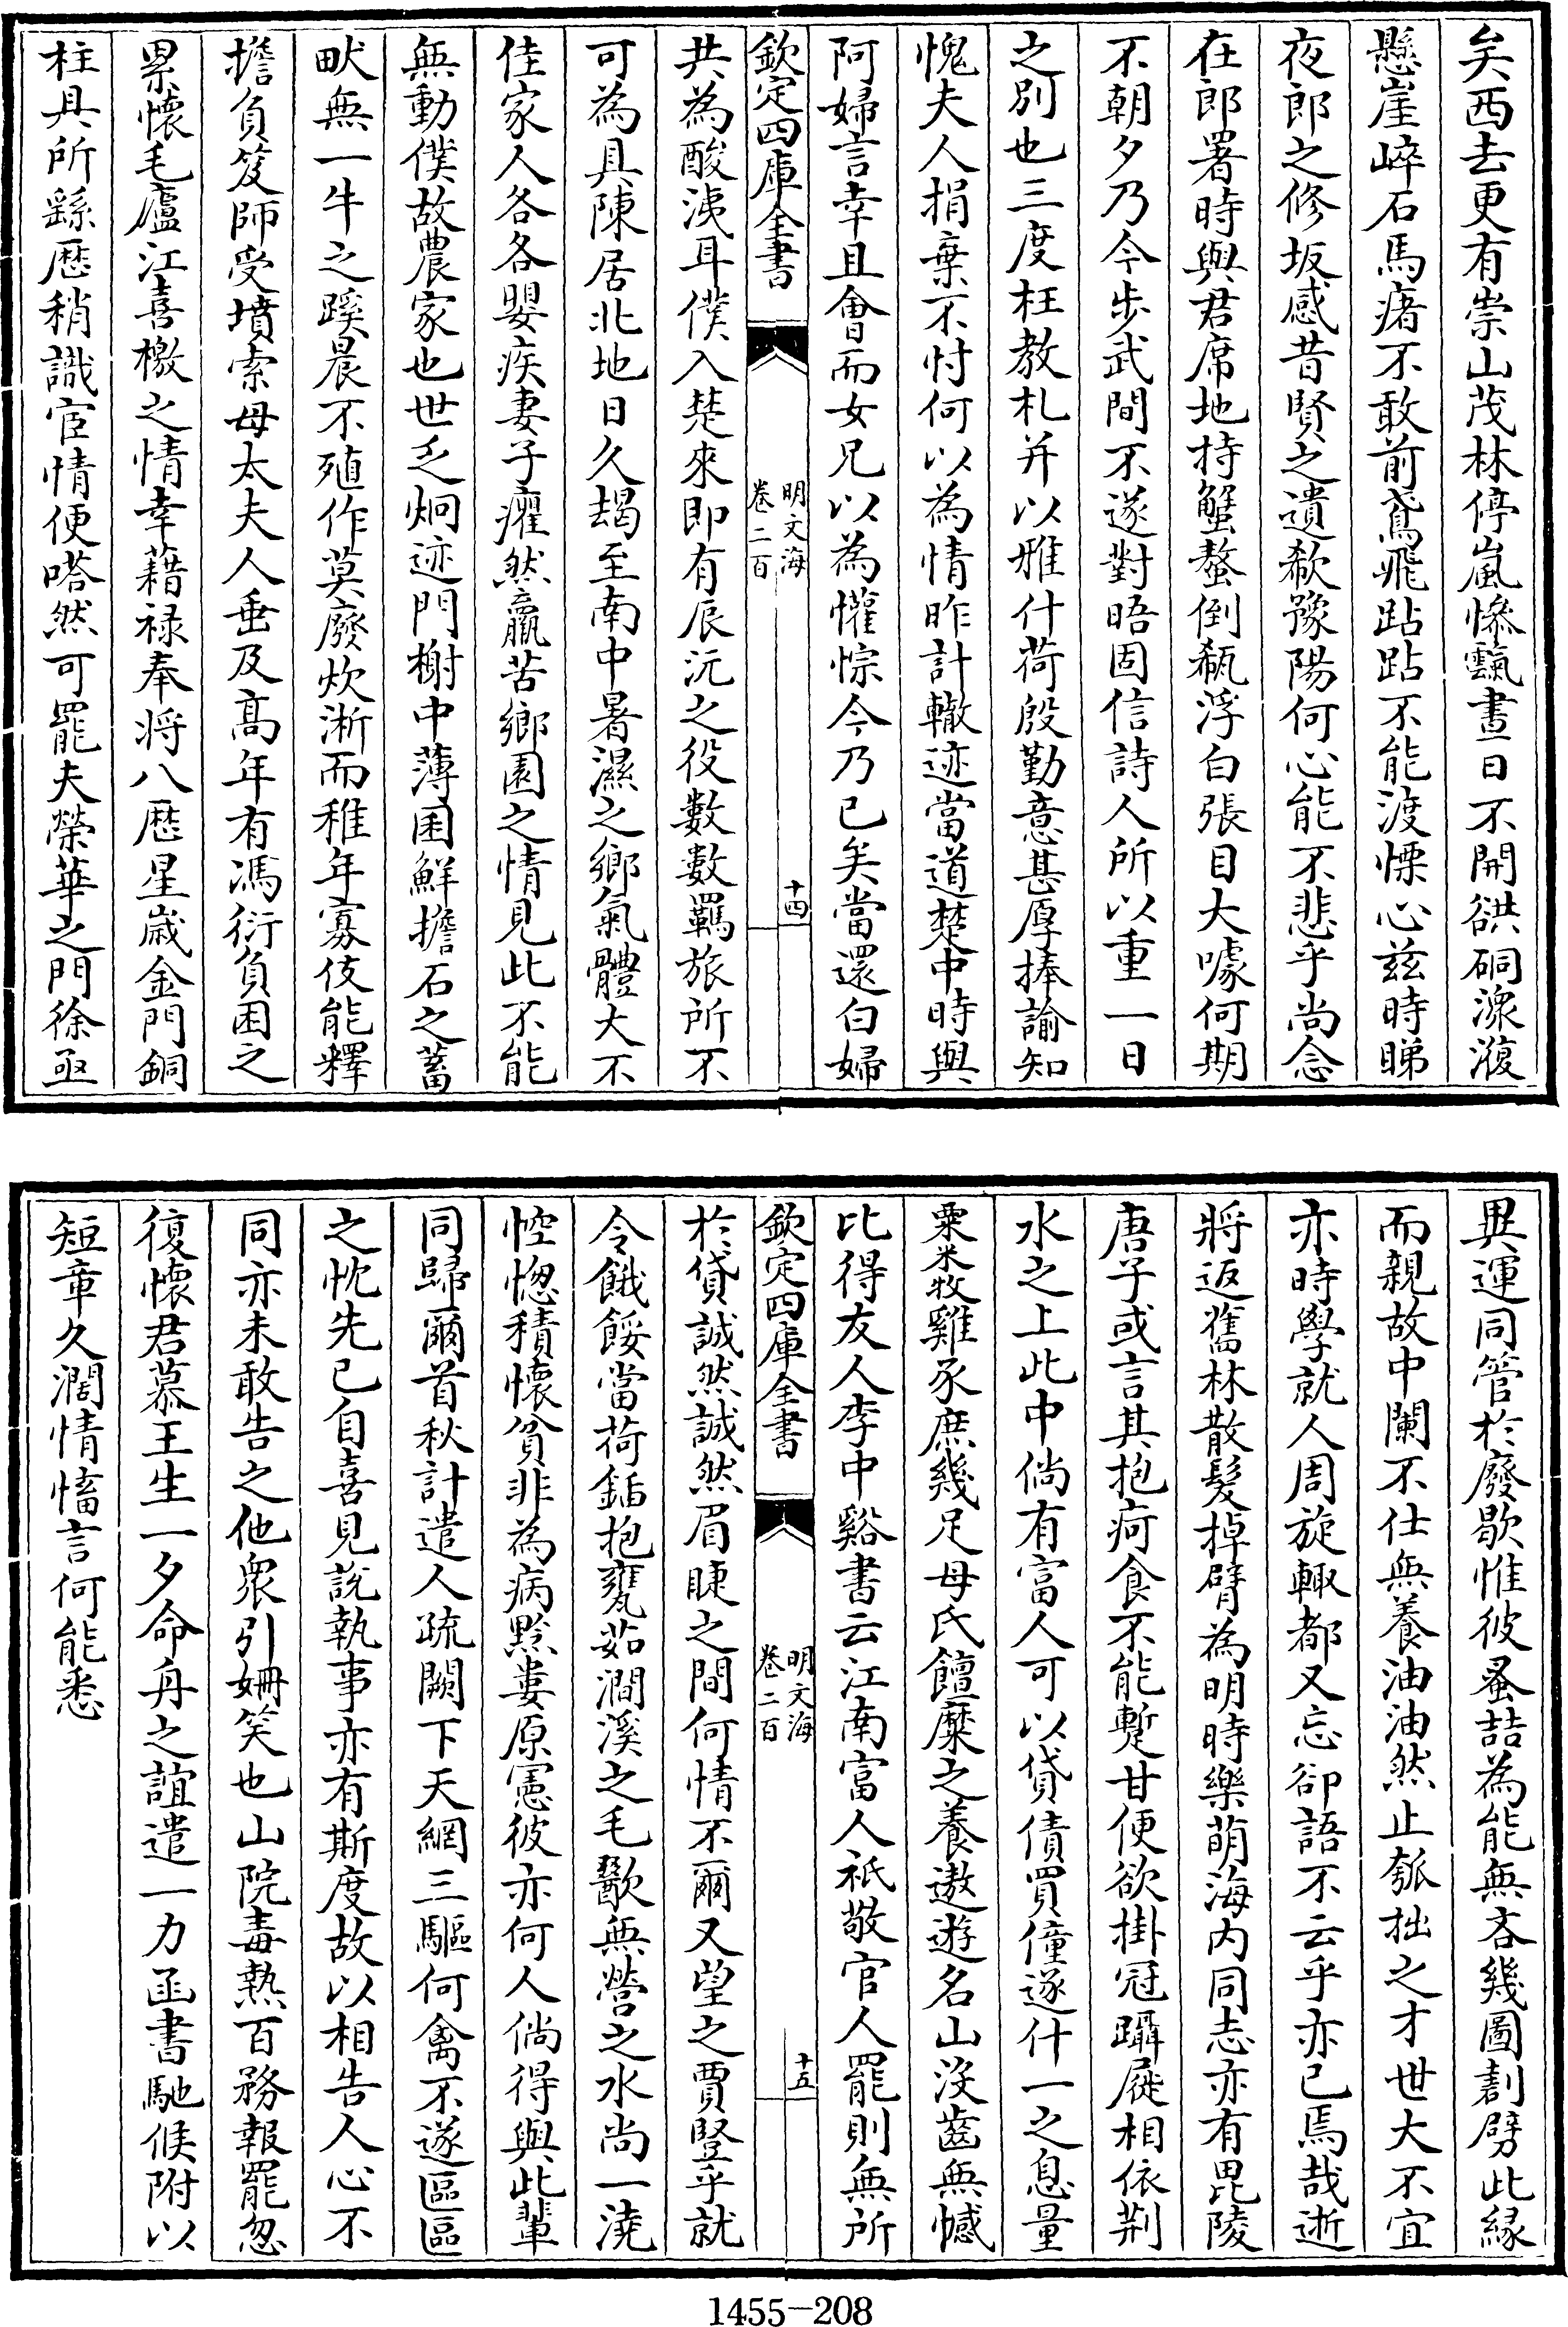 矣西去更有崇山茂林停嵐慘靄晝日不開谼硐潨澓
懸崖崒石馬瘏不敢前鳶飛跕跕不能渡慄心茲時睇
夜郎之修坂感昔賢之遺欷豫陽何心能不悲乎尚念
在郎署時與君席地持蟹螯倒瓻浮白張目大噱何期
不朝夕乃今步武間不遂對晤固信詩人所以重一日
之別也三度枉教札并以雅什荷殷勤意甚厚捧諭知
愧夫人捐棄不忖何以為情昨計轍迹當道楚中時與
阿婦言幸且會而女兄以為懽悰今乃已矣當還白婦
欽定四庫全書
明文海
卷二百
十四
共為酸洟耳僕入楚來即有辰沅之役數數羈旅所不
可為具陳居北地日久朅至南中暑濕之鄉氣體大不
佳家人各各嬰疾妻子癯然羸苦鄉園之情見此不能
無動僕故農家也世乏炯迹門榭中薄困鮮擔石之蓄
畎無一牛之蹊晨不殖作莫廢炊淅而稚年寡伎能釋
擔負笈師受墳索母太夫人垂及高年有馮衍負困之
累懷毛廬江喜檄之情幸藉祿奉將八歷星歲金門銅
柱具所繇歷稍識宦情便嗒然可罷夫榮華之門徐亟
異運同管於廢歇惟彼蚤喆為能無吝幾圖劃劈此緣
而親故中闌不仕無養油油然止瓠拙之才世大不宜
亦時學就人周旋輙都又忘卻語不云乎亦已焉哉逝
將返舊林散髮掉臂為明時樂萌海內同志亦有毘陵
唐子或言其抱疴食不能蹔甘便欲掛冠躡屣相依荆
水之上此中倘有富人可以貸債買僮遂什一之息量
粟米牧雞豕庶幾足母氏饘糜之養遨遊名山沒齒無憾
比得友人李中谿書云江南富人祇敬官人罷則無所
欽定四庫全書
明文海
卷二百
十五
於貸誠然誠然眉睫之間何情不爾又望之賈豎乎就
令餓餒當荷鍤抱甕茹澗溪之毛歠無營之水尚一澆
悾惚積懷貧非為病黔婁原憲彼亦何人倘得與此輩
同歸爾首秋計遣人疏闕下天網三驅何禽不遂區區
之忱先已自喜見說執事亦有斯度故以相告人心不
同亦未敢告之他眾引姍笑也山院毒熱百務報罷忽
復懷君慕王生一夕命舟之誼遣一力函書馳候附以
短章久濶情愾言何能悉
1455-208